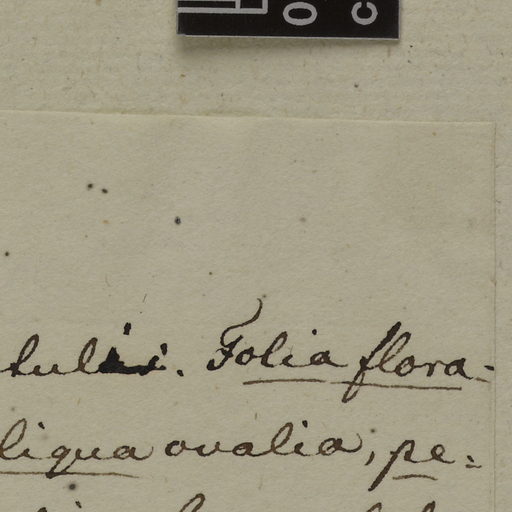 tulis. Folia flora-
liqua ovalia, pe-